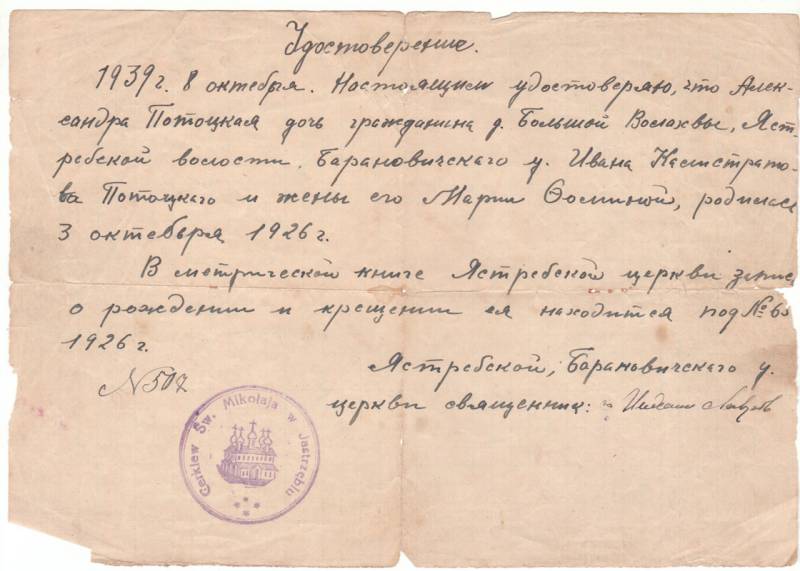 Удостоверение.
1939 г. 8 октября. Настоящим удостоверяю, что Алек-
сандра Потоцкая дочь гражданина д. Большой Волохвы, Яст-
ребской волости, Барановичского у. Ивана Калистрато-
ва Потоцкаго и жены его Марии Ѳоминой, родилась
3 октября 1926 г.
В метрической книге Ястребской церкви запись
о рождении и крещении ея находится под № 63
1926 г.
Ястребской, Барановичскаго у.
№ 507
церкви священник:
Cerkiew Św. Mikołaja w Jastrzęblu